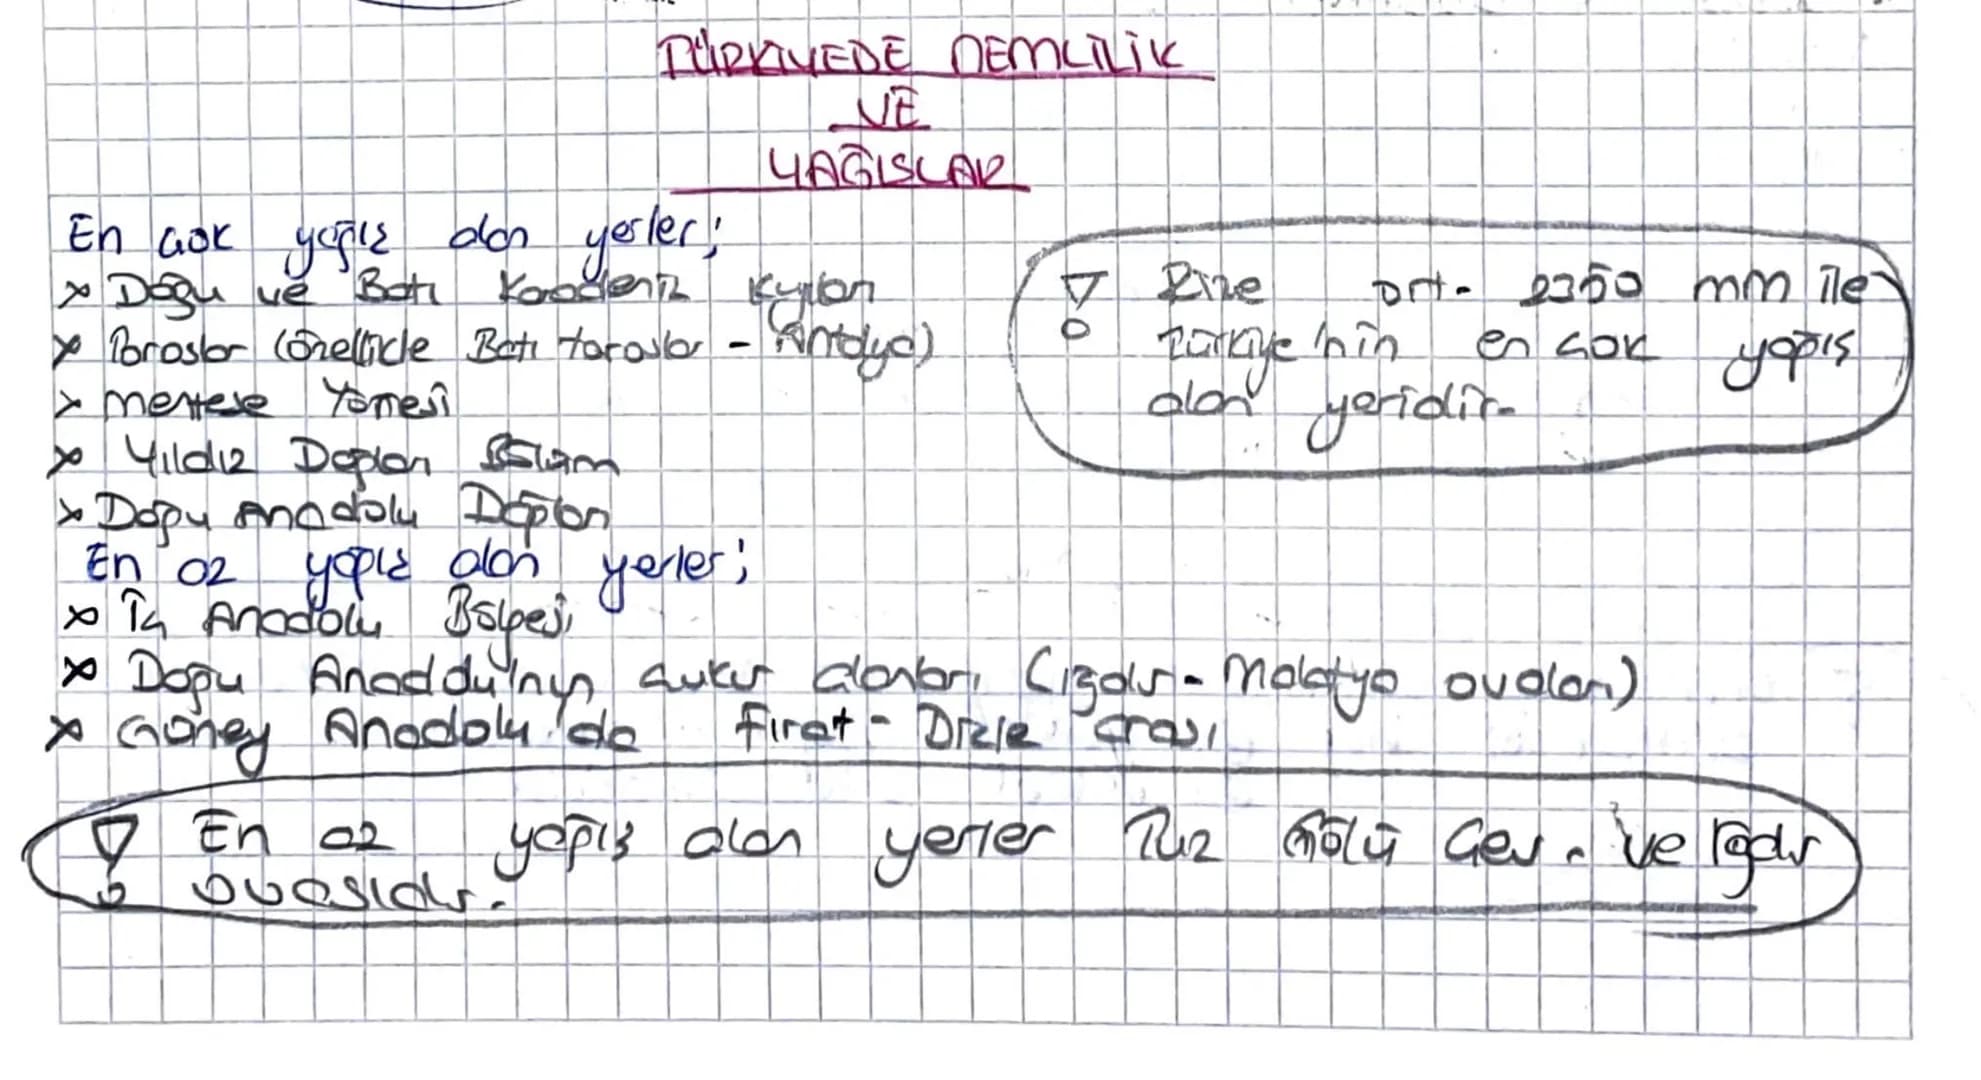 TÜRKİYEDE NEMLİLİK
VE
YAĞISLAR
En çok yağış alan yerler;
x Doğu ve Batı Karadeniz Kıyıları
x Toroslar (özellikle Batı toroslar - Antalya)
x menteşe Yöresi
x Yıldız Dağları Bölüm
x Doğu Anadolu Dağları
! Rize ort. 2350 mm ile
Türkiye'nin en çok yağış
alan yeridir.
En az yağış alan yerler;
x İç Anadolu Bölgesi
x Doğu Anadolu'nun çukur alanları (Iğdır - Malatya ovaları)
x Güney Anadolu'da Fırat - Dicle arası
! En az yağış alan yerler Tuz Gölü Çev. ve Iğdır
ovasıdır.